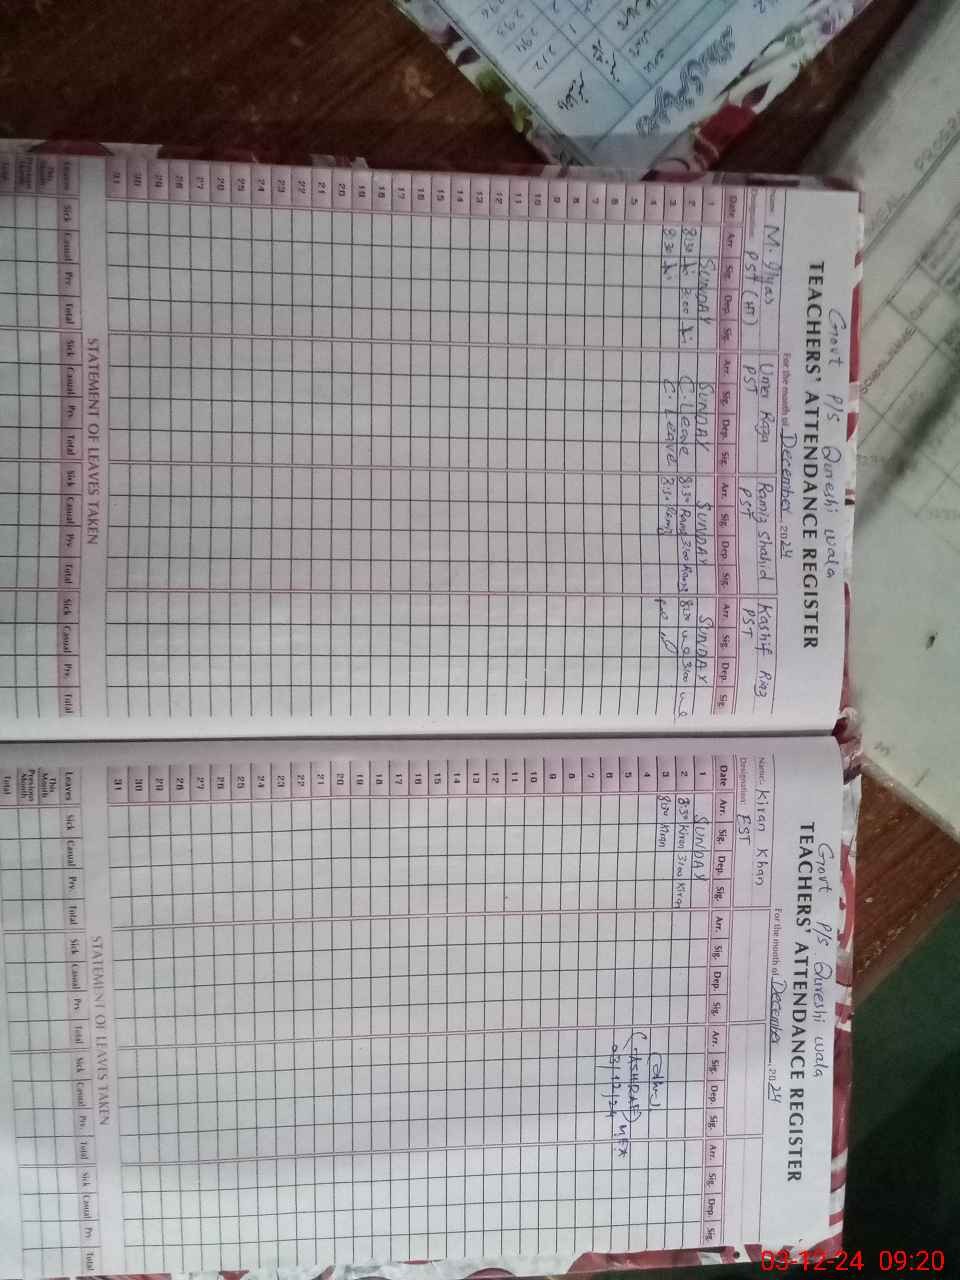 Govt P/S Qureshi wala
TEACHERS' ATTENDANCE REGISTER
For the month of December, 2024
Name: M. Ilyas Umer Raza Ramiz Shahid Kashif Riaz
Designation: PST (HT) PST PST PST
Date Arr. Sig. Dep. Sig. Arr. Sig. Dep. Sig. Arr. Sig. Dep. Sig. Arr. Sig. Dep. Sig.
1 SUNDAY SUNDAY SUNDAY SUNDAY
2 8:30 3:00 C. Leave 8:30 Ramiz 3:00 Ramiz 8:30 3:00
3 8:30 C. Leave 8:30 Ramiz
4
5
6
7
8
9
10
11
12
13
14
15
16
17
18
19
20
21
22
23
24
25
26
27
28
29
30
31
STATEMENT OF LEAVES TAKEN
Leaves Sick Casual Prv. Total Sick Casual Prv. Total Sick Casual Prv. Total Sick Casual Prv. Total
This Month
Previous Month
Total
Govt P/S Qureshi wala
TEACHERS' ATTENDANCE REGISTER
For the month of December, 2024
Name: Kiran Khan
Designation: EST
Date Arr. Sig. Dep. Sig. Arr. Sig. Dep. Sig. Arr. Sig. Dep. Sig. Arr. Sig. Dep. Sig.
1 SUNDAY
2 8:30 Kiran 3:00 Kiran
3 8:30 Kiran
4
5 (ASHRAF) MEA
6 03/12/24
7
8
9
10
11
12
13
14
15
16
17
18
19
20
21
22
23
24
25
26
27
28
29
30
31
STATEMENT OF LEAVES TAKEN
Leaves Sick Casual Prv. Total Sick Casual Prv. Total Sick Casual Prv. Total Sick Casual Prv. Total
This Month
Previous Month
Total
03-12-24 09:20